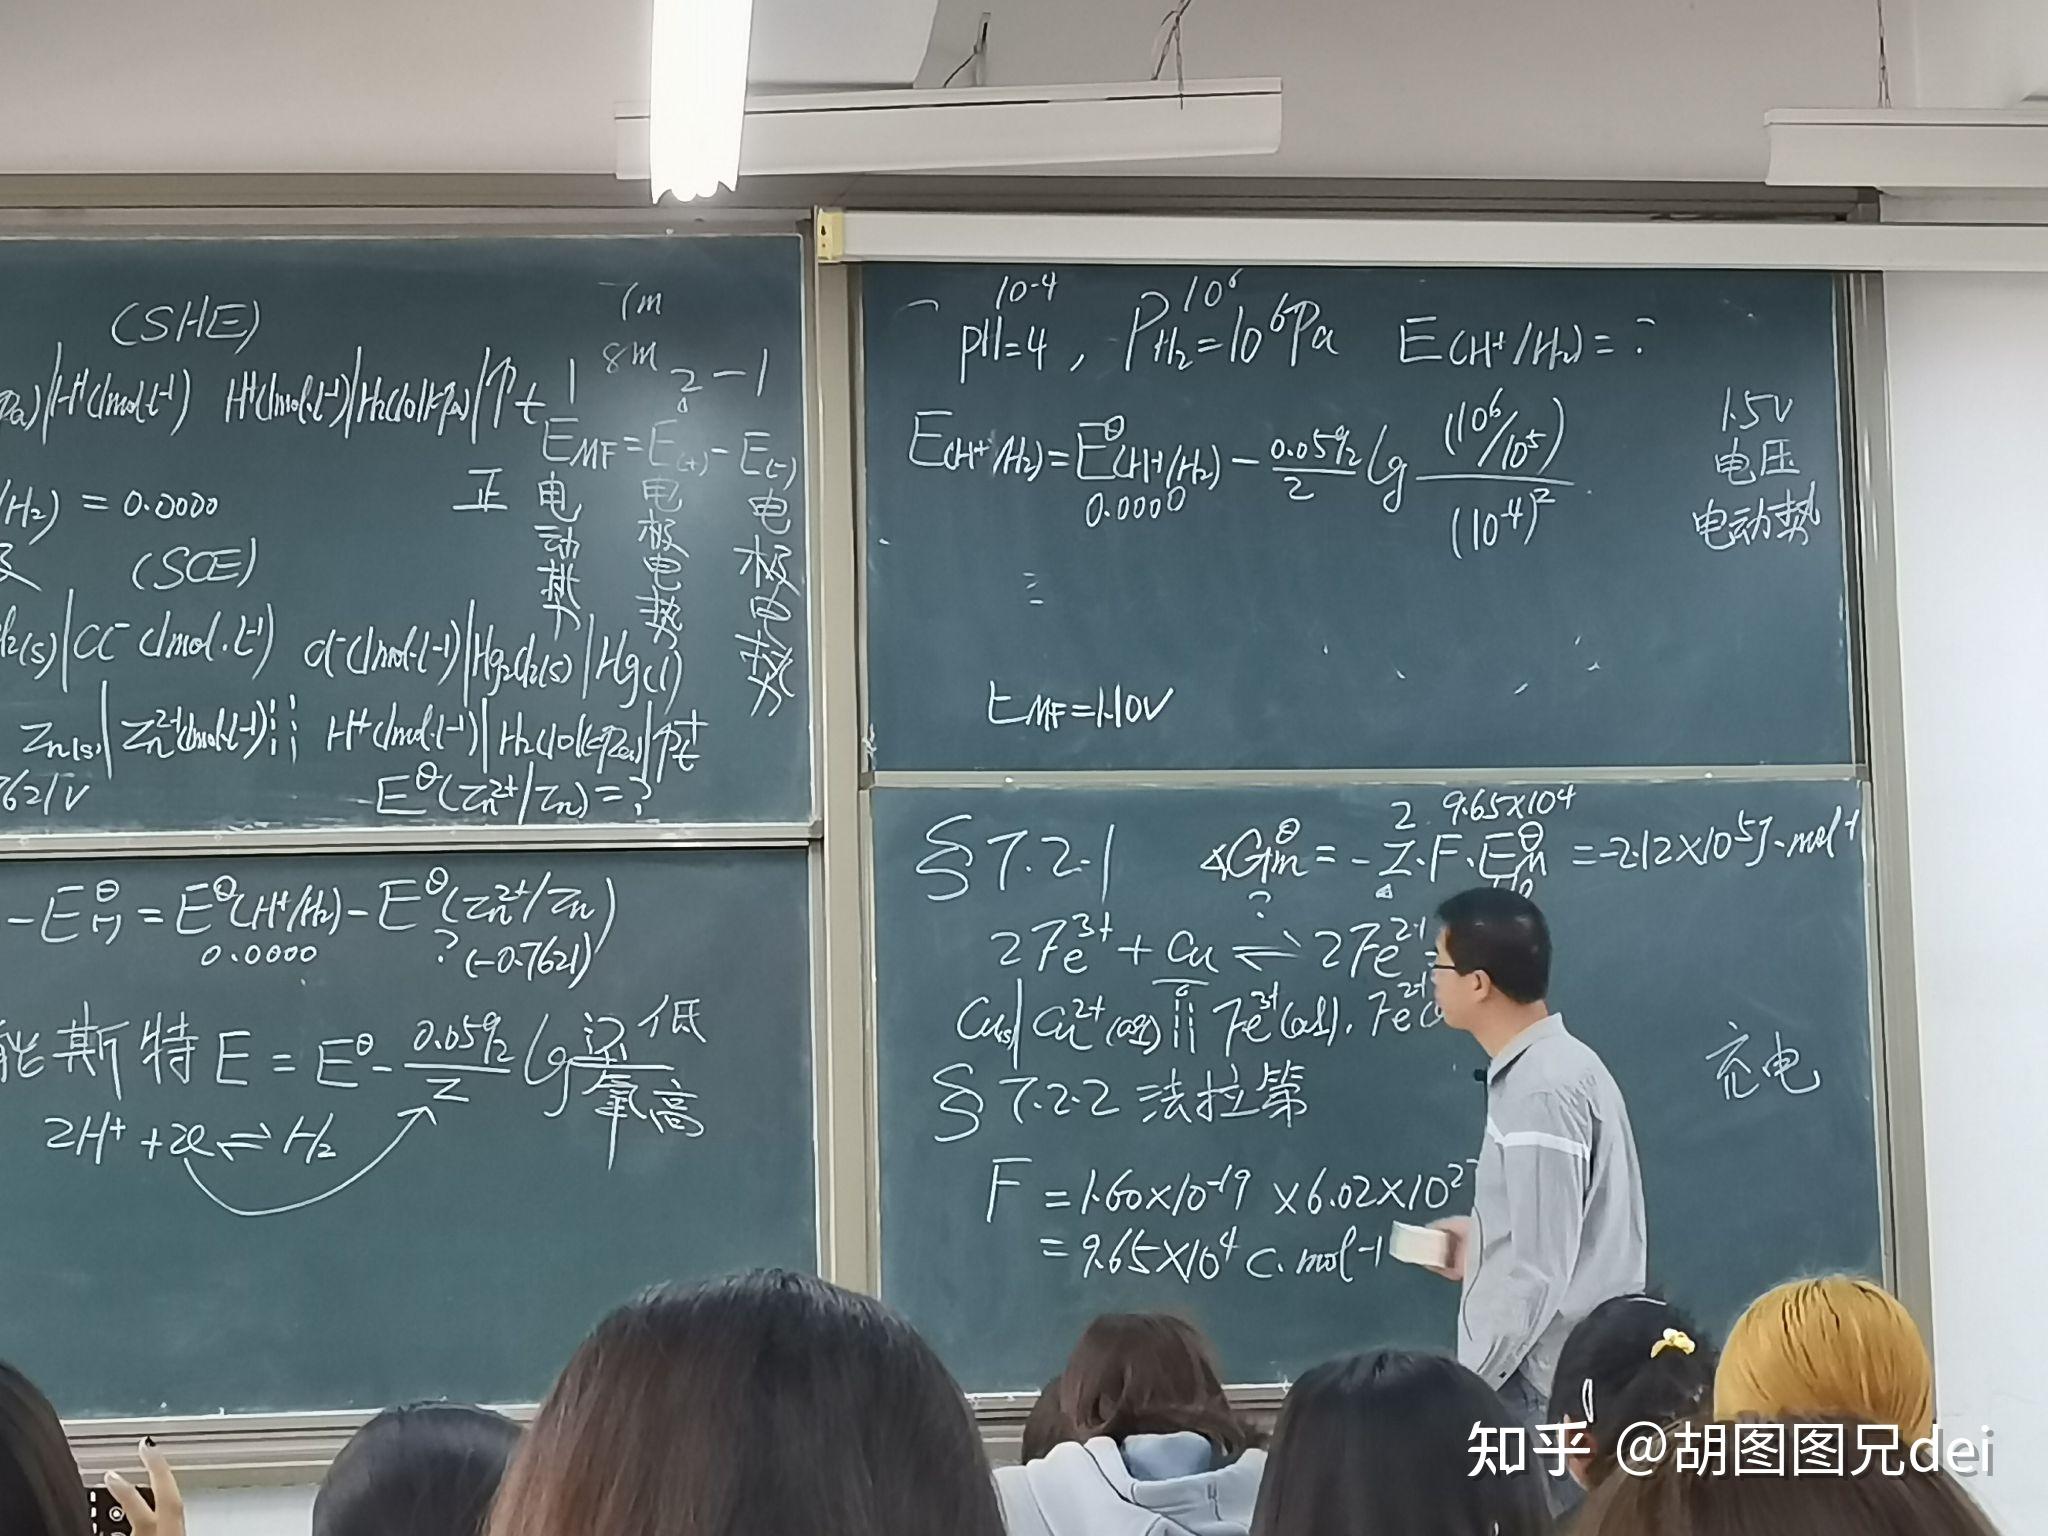 (SHE)
1m
8m
2-1
Pa)|H⁺(1mol·L⁻¹) H⁺(1mol·L⁻¹)|H₂(101kPa)|Pt
E_MF=E(+)-E(-)
正 电动势 电极电势 电极电势
/H₂)=0.0000
(SCE)
l₂(s)|Cl⁻(1mol·L⁻¹) Cl⁻(1mol·L⁻¹)|Hg₂Cl₂(s)|Hg(l)
Zn(s)|Zn²⁺(1mol·L⁻¹)¦¦H⁺(1mol·L⁻¹)|H₂(101kPa)|Pt⁺
7621V E^θ(Zn²⁺/Zn)=?
-E^θ(-)=E^θ(H⁺/H₂)-E^θ(Zn²⁺/Zn)
0.0000 ?(-0.7621)
能斯特 E=E^θ-0.0592/Z lg 还/氧 低 高
2H⁺+2e⇌H₂
10⁻⁴ 10⁶
pH=4, P_H₂=10⁶Pa E(H⁺/H₂)=?
E(H⁺/H₂)=E^θ(H⁺/H₂)-0.0592/2 lg (10⁶/10⁵)/(10⁻⁴)²
0.0000
1.5V
电压
电动势
E_MF=1.10V
2 9.65×10⁴
§7.2.1 △G^θm=-Z·F·E^θ =-2.12×10⁵J·mol⁻¹
?
2Fe³⁺+Cu⇌2Fe²⁺
Cu(s)|Cu²⁺(aq)¦¦Fe³⁺(aq),Fe²⁺
§7.2.2 法拉第
充电
F=1.60×10⁻¹⁹×6.02×10²
=9.65×10⁴C·mol⁻¹
知乎 @胡图图兄dei